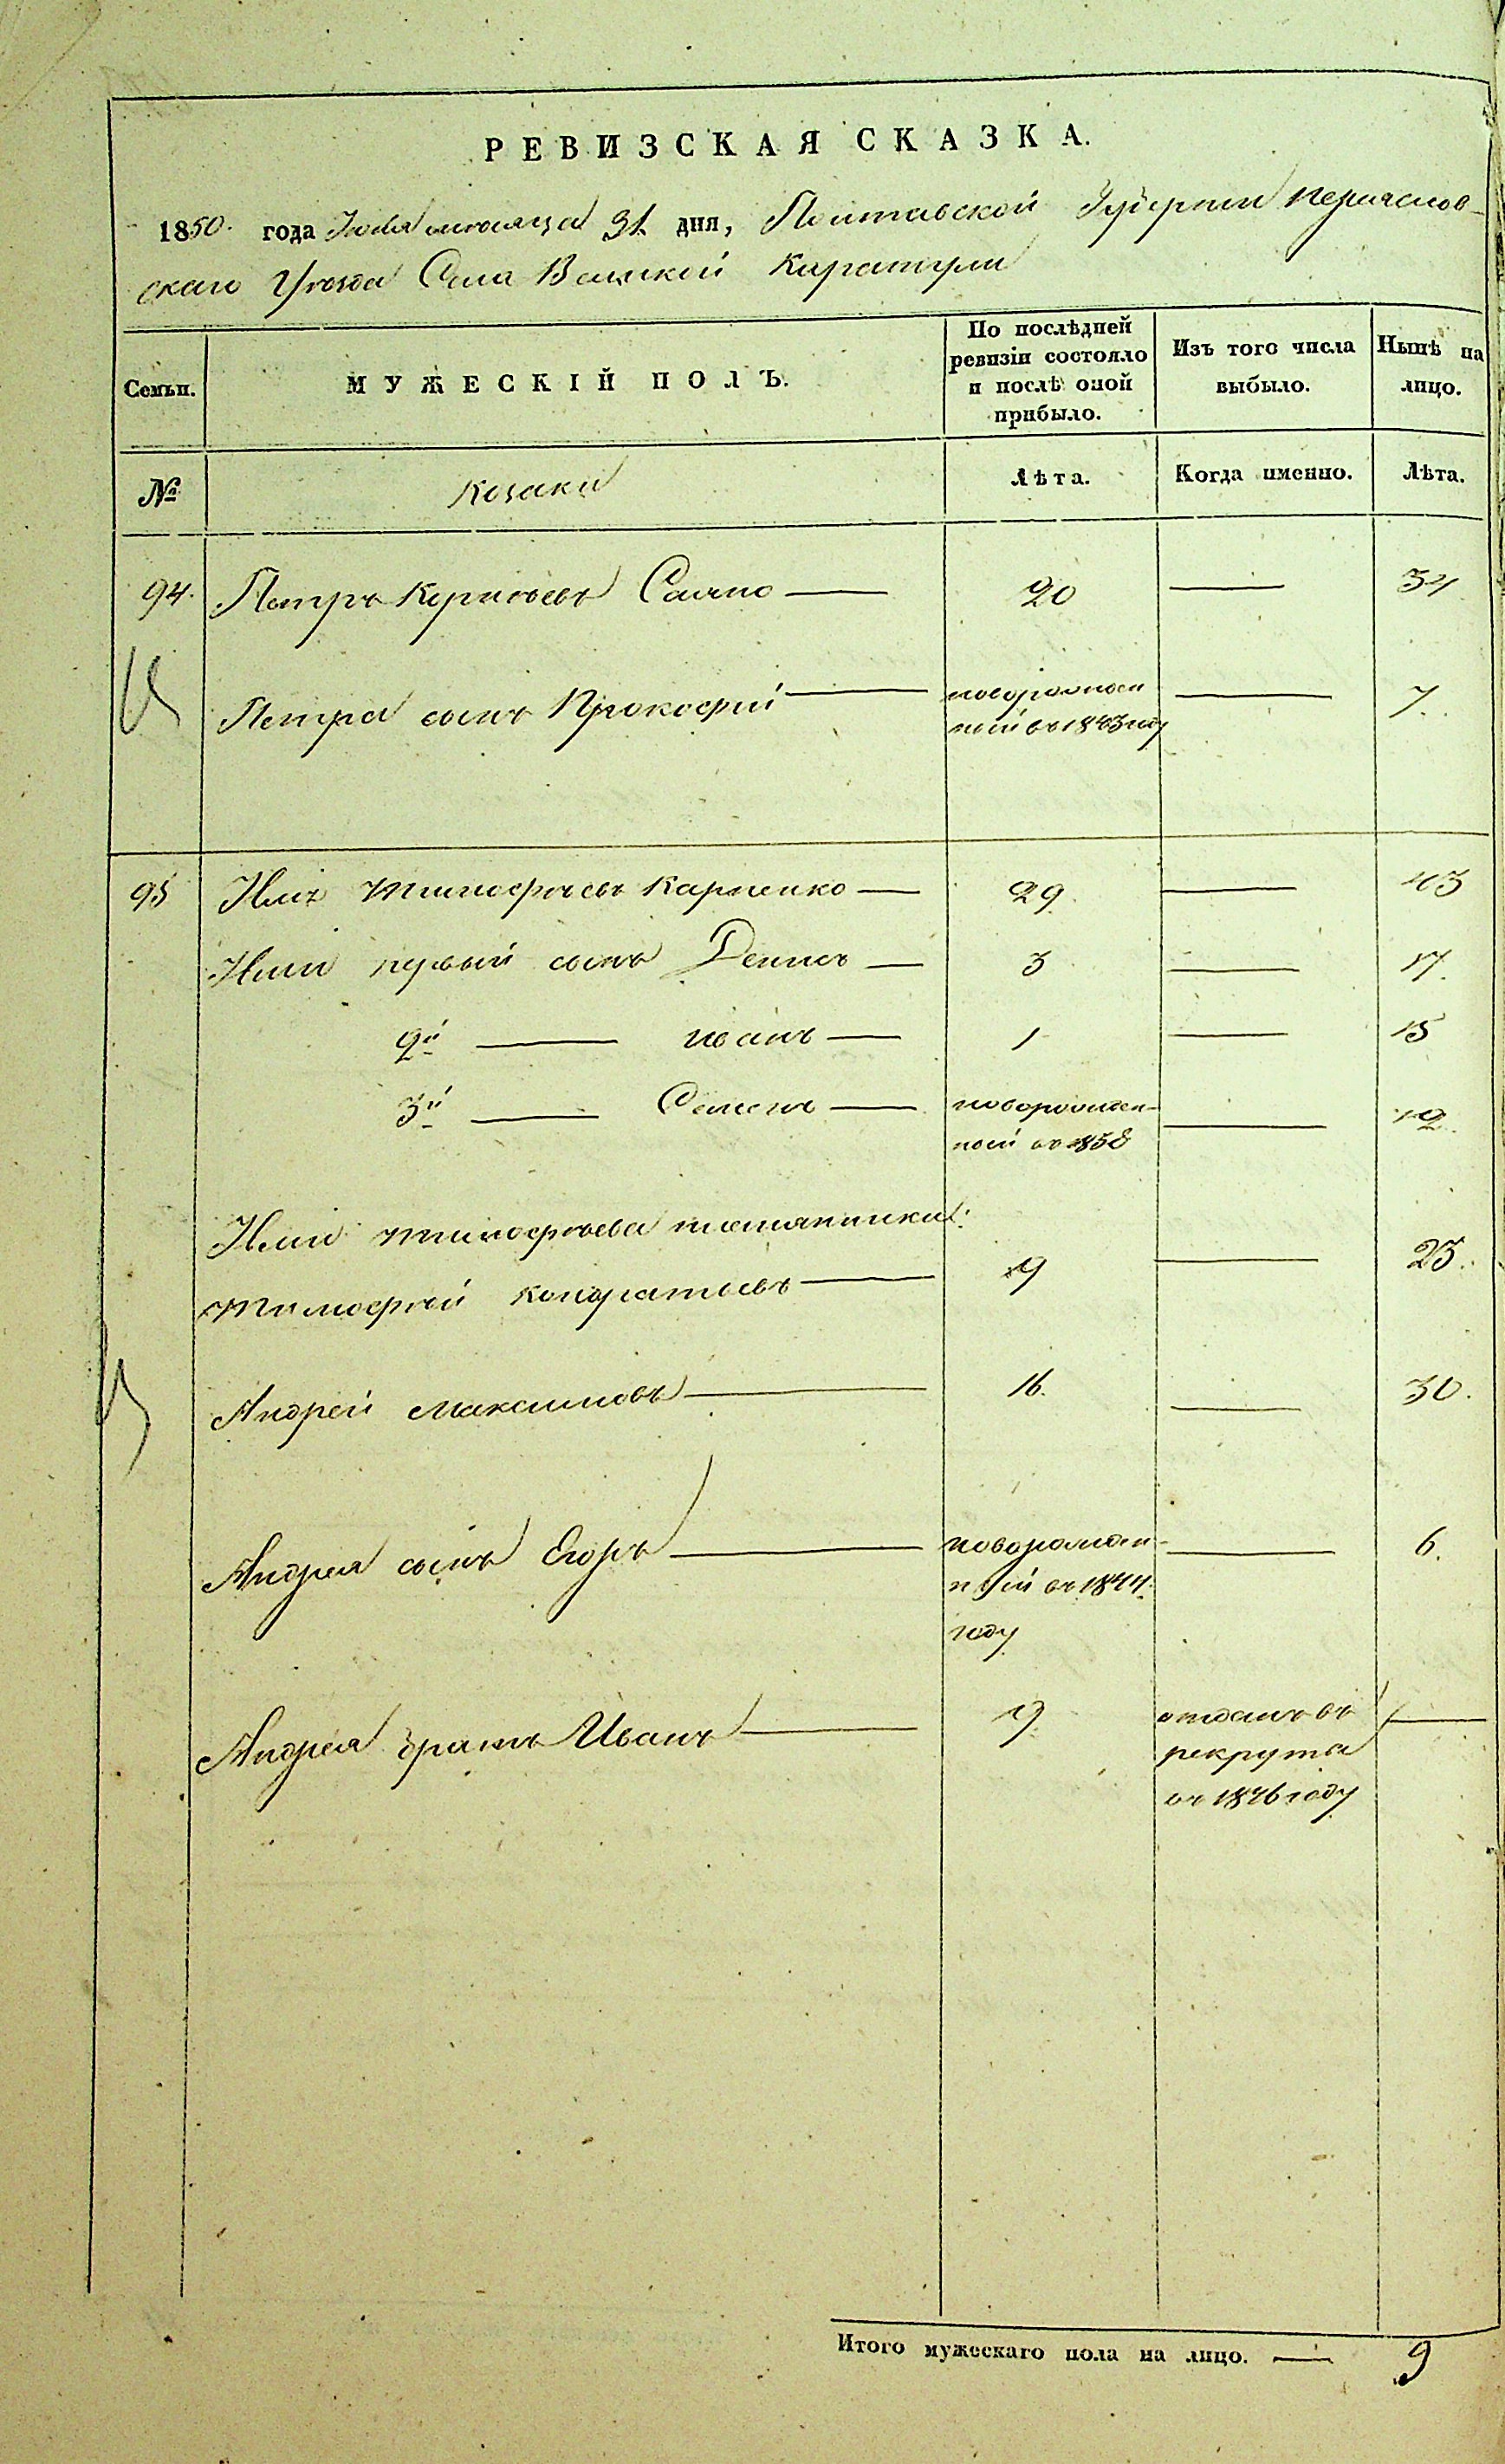 РЕВИЗСКАЯ СКАЗКА.
1850. года Июля месяца 31 дня, Полтавской Губернии Переяслов-
скаго Уезда Села Великой Каратули
Семьи. МУЖЕСКІЙ ПОЛЪ. По послѣдней ревизіи состояло и послѣ оной прибыло. Изъ того числа выбыло. Нынѣ на лицо.
№ Козаки Лѣта. Когда именно. Лѣта.
94. Петръ — 20 — 34
Петра сынъ Прокофій — новорожден — 7.
ный въ 1843 году
95 Илія Тимофѣевъ Карпенко — 29. — 43
Иліи первый сынъ Денисъ — 3 — 17.
2й — Иванъ — 1 — 15
3й — Семенъ — новорожден- — 12.
ный въ 1838
Иліи Тимофѣева племянники:
Тимофѣй Кондратьевъ — 9 — 23.
Андрей Максимовъ — 16. — 30.
Андрея сынъ Егоръ — новорожден- — 6.
ный въ 1844.
году
Андрея братъ Иванъ — 9. отданъ въ —
рекруты
въ 1846 году
Итого мужескаго пола на лицо. — 9